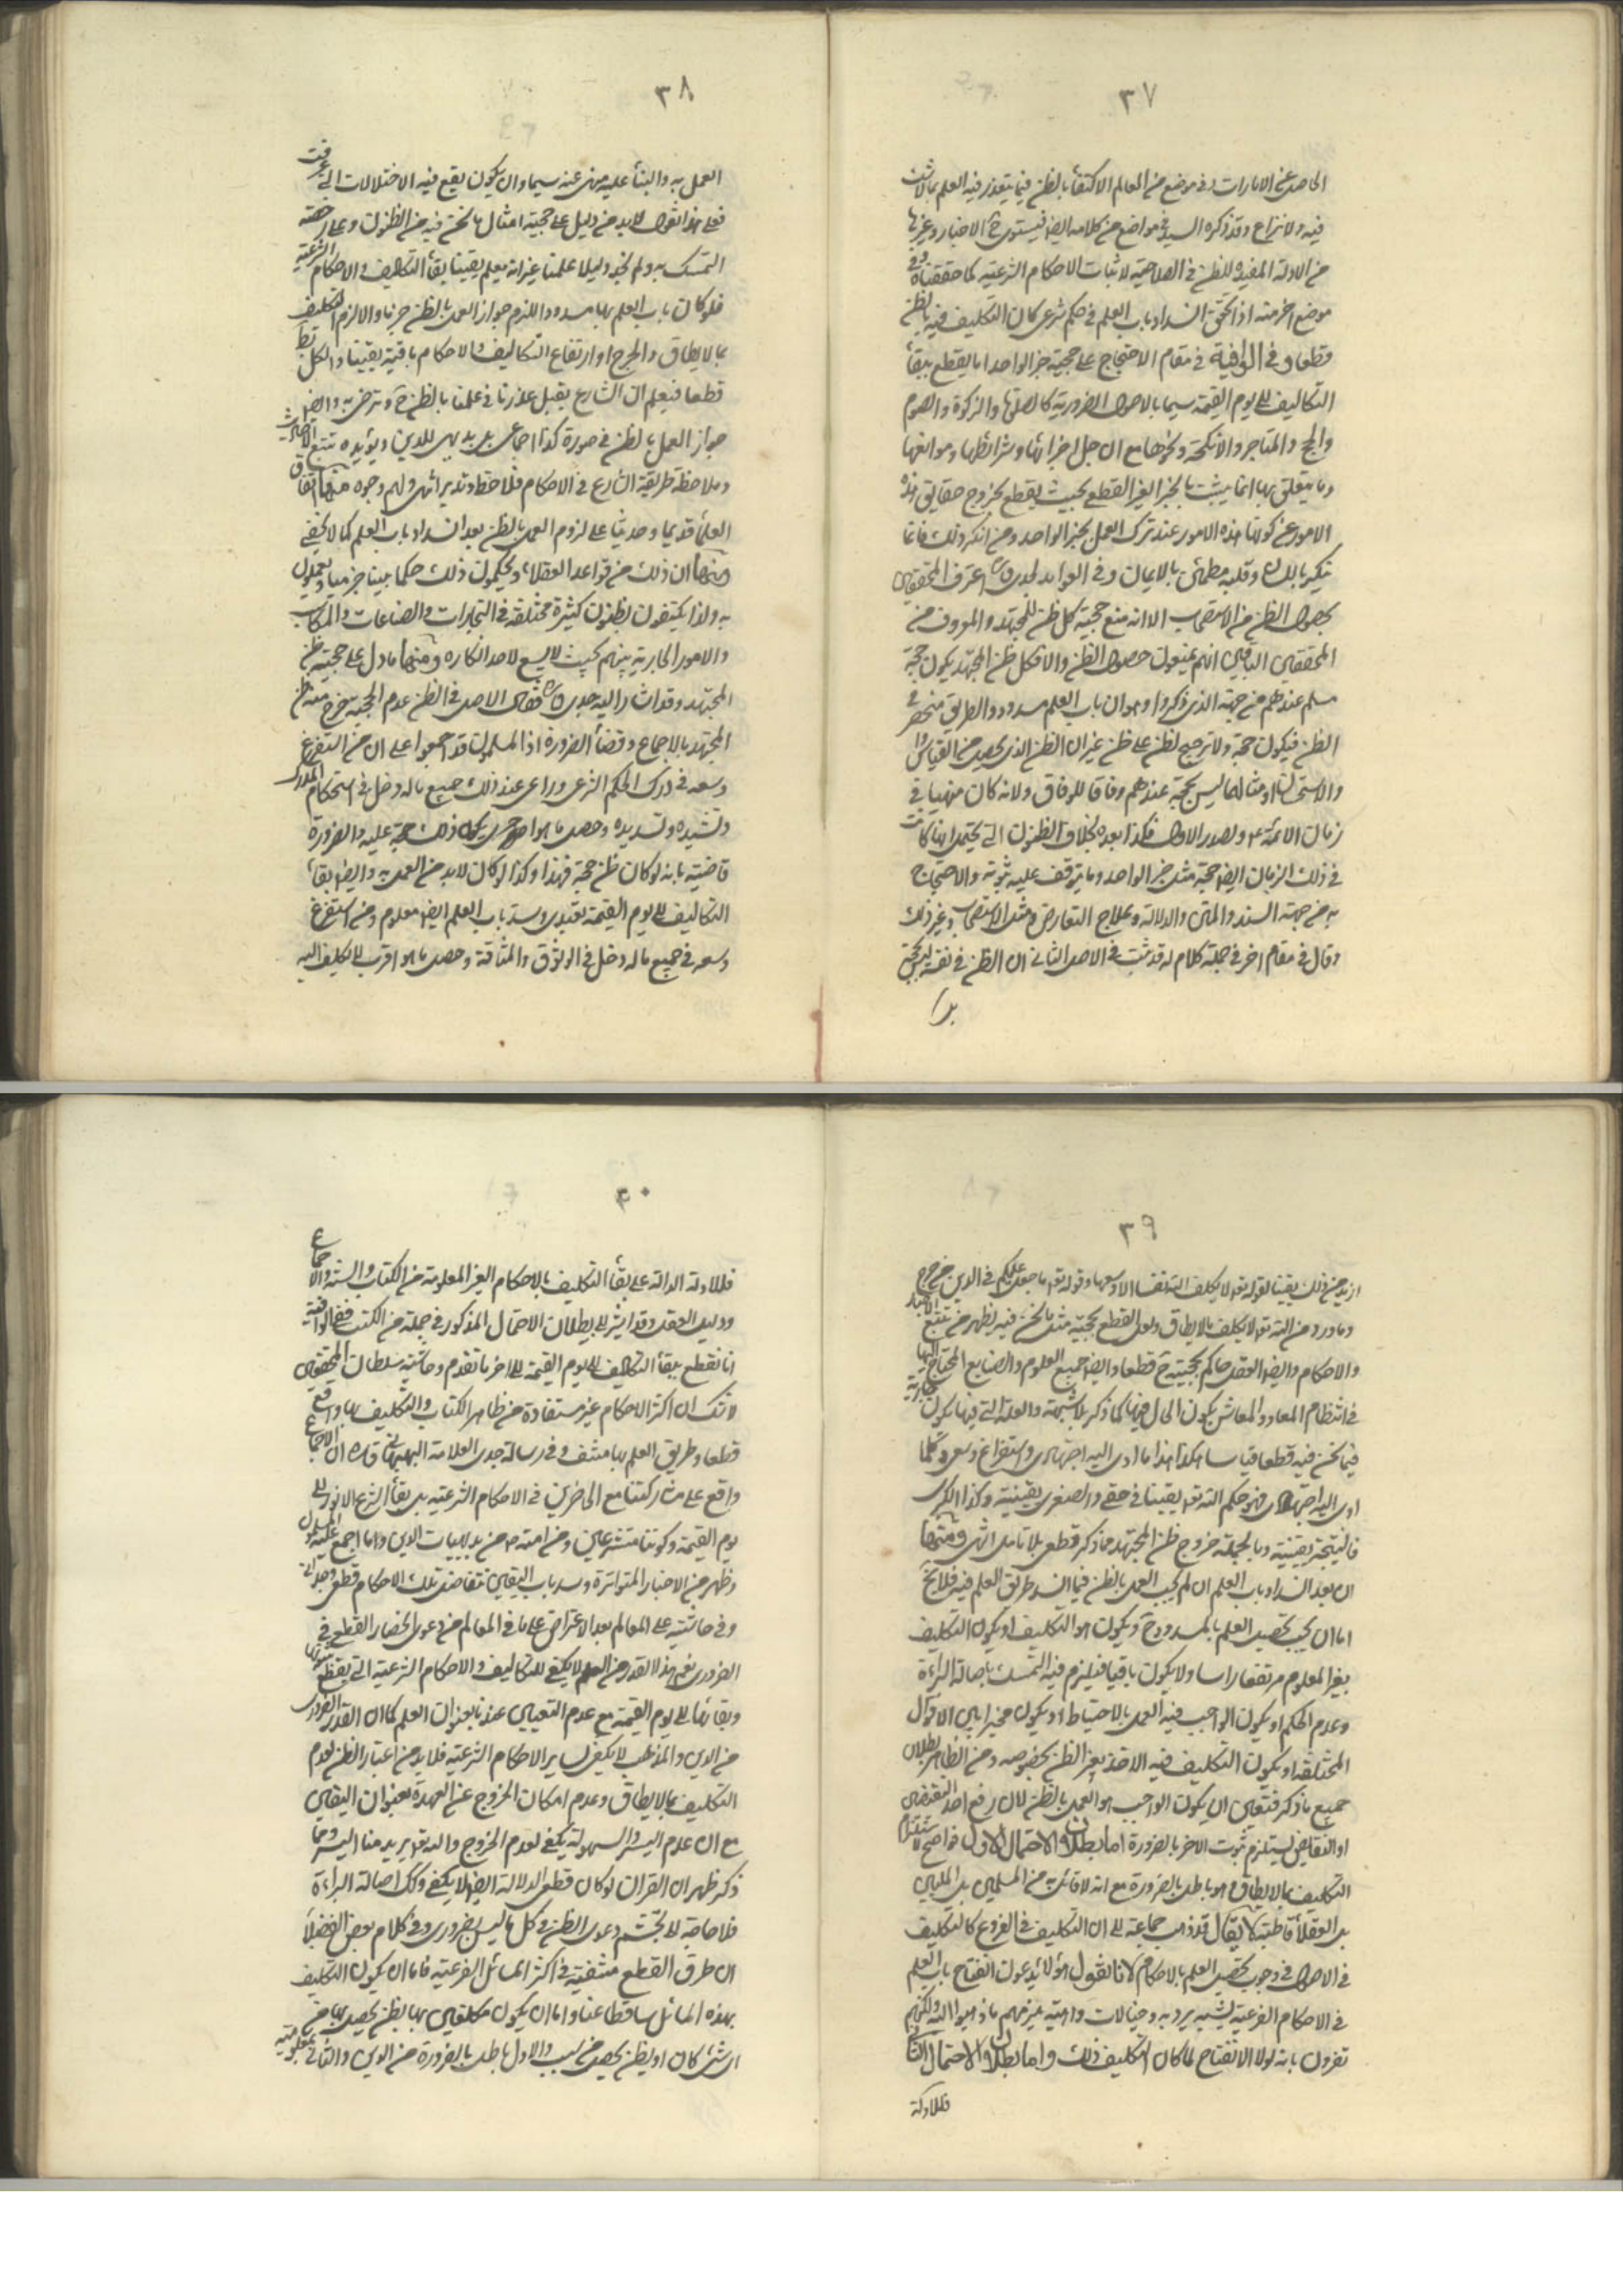 ٣٧
الحاصل عن الامارات وفي موضع من المعالم الاكتفاء بالظن فيما يتعذر فيه العلم مما لا شك
فيه ولا نزاع وقد ذكره السيد في مواضع من كلامه ايضا فيستوي ح الاخبار وغيرها
من الادلة المفيدة للظن في الصلاحية لاثبات الاحكام الشرعية كما حققناه وفي
موضع اخر منه اذا تحقق انسداد باب العلم في حكم شرعي كان التكليف فيه بالظن
قطعا وفي الوافية في مقام الاحتجاج على حجية خبر الواحد انا نقطع ببقاء
التكاليف الى يوم القيمة سيما بالاصول الضرورية كالصلوة والزكوة والصوم
والحج والمتاجر والانكحة ونحوها مع ان جل اجزائها وشرائطها وموانعها
وما يتعلق بها انما يثبت بالخبر الغير القطعي بحيث يقطع بخروج حقايق هذه
الامور عن كونها هذه الامور عند ترك العمل بخبر الواحد ومن انكر ذلك فانما
ينكر باللسان وقلبه مطمئن بالايمان وفي الفوايد لجدي اعترف المحققون
بحصول الظن من الاستصحاب الا انه منع حجية كل ظن للمجتهد والمعروف من
المحققين الباقين انهم يمنعون حصول الظن والا فكل ظن المجتهد يكون حجة
مسلم عندهم من جهة الذي ذكروا وهو ان باب العلم مسدود والطريق منحصر في
الظن فيكون حجة ولا ترجيح لظن على ظن غير ان الظن الذي يحصل من القياس
والاستحسان او مثالهما ليس بحجة عندهم وفاقا للوفاق ولانه كان منهيا في
زمان الائمة ع والصدر الاول فكذا بعده بخلاف الظنون التي يحتمل انها كانت
في ذلك الزمان ايضا حجة مثل خبر الواحد وما يتوقف عليه ثبوته والاحتجاج
به من جهة السند والمتن والدلالة وعلاج التعارض ومثل الاستصحاب وغير ذلك
وقال في مقام اخر في جملة كلام له قد ثبت في الاصل الثاني ان الظن في نفسه ليس بحجة
٣٨
العمل به والبناء عليه منهي عنه سيما وان يكون يقع فيه الاختلالات التي عرفت
فعلى هذا نقول لابد من دليل على حجية امثال ما نحن فيه من الظنون وعلى رخصة
التمسك به ولم نجد دليلا علمنا غير انه يعلم يقينا بقاء التكاليف والاحكام الشرعية
فلو كان باب العلم بها مسدودا للزم جواز العمل بالظن جزما والا لزم التكليف
بما لا يطاق والحرج او ارتفاع التكاليف والاحكام باقية يقينا والكل بط
قطعا فنعلم ان الشارع يقبل عذرنا في علمنا بالظن ح ويرضى به وايضا
جواز العمل بالظن في صورة كذا اجماعي بل بديهي للدين ويؤيده تتبع الاحاديث
وملاحظة طريقة الشارع في الاحكام فلاحظ وتدبر انتهى ولهم وجوه منها اتفاق
العلماء قديما وحديثا على لزوم العمل بالظن بعد انسداد باب العلم كما لا يخفى
ومنها ان ذلك من قواعد العقلاء ويحكمون ذلك حكما بينا جزميا ويعملون
به ولذا يكتفون بظنون كثيرة مختلفة في التجارات والصناعات والمكاسب
والامور الجارية بينهم بحيث لا يسع لاحد انكاره ومنها ما دل على حجية ظن
المجتهد وقد اشار اليه جدي فقال الاصل في الظن عدم الحجية خرج منه ظن
المجتهد بالاجماع وقضاء الضرورة اذ المسلمون قد اجمعوا على ان من استفرغ
وسعه في درك الحكم الشرعي وراعى عند ذلك جميع ما له دخل في استحكام المدرك
وتشييده وتسديده وحصل ما هو احرى يكون ذلك حجة عليه والضرورة
قاضية بانه لو كان ظن حجة فهذا وكذا لو كان لابد من العمل به وايضا بقاء
التكاليف الى يوم القيمة يقيني وسد باب العلم ايضا معلوم ومن استفرغ
وسعه في جميع ما له دخل في الوثوق والمتانة وحصل ما هو اقرب لا يكلف اليه
٣٩
ازيد من ذلك يقينا لقوله تع لا يكلف الله نفسا الا وسعها وقوله تع ما جعل عليكم في الدين من حرج
وما ورد من الله تع لا يكلف ما لا يطاق ولعل القطع بحجية مثل ما نحن فيه يظهر من تتبع الاخبار
والاحكام وايضا العقل حاكم بحجيته ح قطعا وايضا جميع العلوم والصنايع المحتاج اليها
في انتظام المعاد والمعاش يكون الحال فيها كما ذكر بلا شبهة والعلة التي فيها يكون جارية
فيما نحن فيه قطعا قياسا هكذا هذا ما ادى اليه اجتهادي واستفراغ وسعي وكلما
ادى اليه اجتهادي فهو حكم الله تع يقينا في حقي والصغرى يقينية وكذا الكبرى
فالنتيجة يقينية وبالجملة خروج ظن المجتهد مما ذكر قطعي بلا تأمل انتهى ومنها
ان بعد انسداد باب العلم ان لم يجب العمل بالظن فيما انسد طريق العلم فيه فلا يخ
اما ان يجب تحصيل العلم بالمسدود ح ويكون هو التكليف او يكون التكليف
بغير المعلوم مرتفعا راسا ولا يكون باقيا فيلزم فيه التمسك باصالة البراءة
وعدم الحكم او يكون الواجب فيه العمل بالاحتياط او يكون مخيرا بين الاقوال
المختلفة او يكون التكليف فيه الاخذ بغير الظن بخصوصه ومن الظاهر بطلان
جميع ما ذكر فتعين ان يكون الواجب هو العمل بالظن لان رفع احد النقيضين
او النقايض يستلزم ثبوت الاخر بالضرورة اما بطلان الاحتمال الاول فواضح لاستلزام
التكليف بما لا يطاق وهو باطل بالضرورة مع انه لا قائل به من المسلمين بل المليين
بل العقلاء قاطبة لا يقال قد ذهب جماعة الى ان التكليف في الفروع كالتكليف
في الاصول في وجوب تحصيل العلم بالاحكام لانا نقول هؤلاء يدعون انفتاح باب العلم
في الاحكام الفرعية بشبه يردية وخيالات واهية غيرتهم ما ذهبوا اليه ولكنهم
تقرون بانه لولا الانفتاح لما كان التكليف ذلك واما بطلان الاحتمال الثاني
فللادلة
٤٠
فللادلة الدالة على بقاء التكليف بالاحكام الغير المعلومة من الكتاب والسنة والاجماع
ودليل العقل وقد اشير الى بطلان الاحتمال المذكور في جملة من الكتب ففي الوافية
انا نقطع ببقاء التكاليف الى يوم القيمة الى اخر ما تقدم وحاشية سلطان المحققين
لا شك ان اكثر الاحكام غير مستفادة من ظاهر الكتاب والتكليف بها واقع
قطعا وطريق العلم بها منتف وفي رسالة جدي العلامة البهبهاني ان الاجماع
واقع على مشاركتنا مع الحاضرين في الاحكام الشرعية بل بقاء الشرع الانور الى
يوم القيمة وكوننا متشرعين ومن امته ص من بديهيات الدين واما اجمع عليه المسلمون
وظهر من الاخبار المتواترة وسد باب اليقين بتفاصيل تلك الاحكام قطعي وجداني
وفي حاشيته على المعالم بعد الاعتراض على ما في المعالم من دعوى انحصار القطع في
الضروري نعم هذا القدر من العلم لا يكفي للتكاليف والاحكام الشرعية التي يقطع بثبوتها
وبقائها الى يوم القيمة مع عدم التعيين عندنا بعنوان العلم كما ان القدر الضروري
من الدين والمذهب لا يكفي لساير الاحكام الشرعية فلابد من اعتبار الظن لعدم
التكليف بما لا يطاق وعدم امكان الخروج عن العهدة بعنوان اليقين
مع ان عدم اليسر والسهولة يكفي لعدم الخروج والله تع يريد منا اليسر ومما
ذكر ظهر ان القران لو كان قطعي الدلالة ايضا لا يكفي وكك اصالة البراءة
فلا حاجة الى تجشم دعوى الظن في كل ما ليس بضروري وفي كلام بعض الفضلاء
ان طرق القطع منتفية في اكثر المسائل الفرعية فاما ان يكون التكليف
بهذه المسائل ساقطا عنا واما ان يكون مكلفين بها بظن يحصل بها من
اي شئ كان او بظن يحصل من سبب والاول باطل بالضرورة من الدين والثاني